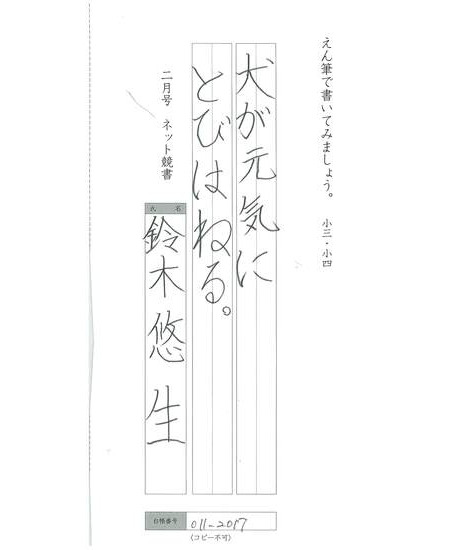 えん筆で書いてみましょう。 小三・小四
犬が元気に
とびはねる。
二月号 ネット競書
氏名
鈴木悠生
台帳番号 011-2017
(コピー不可)